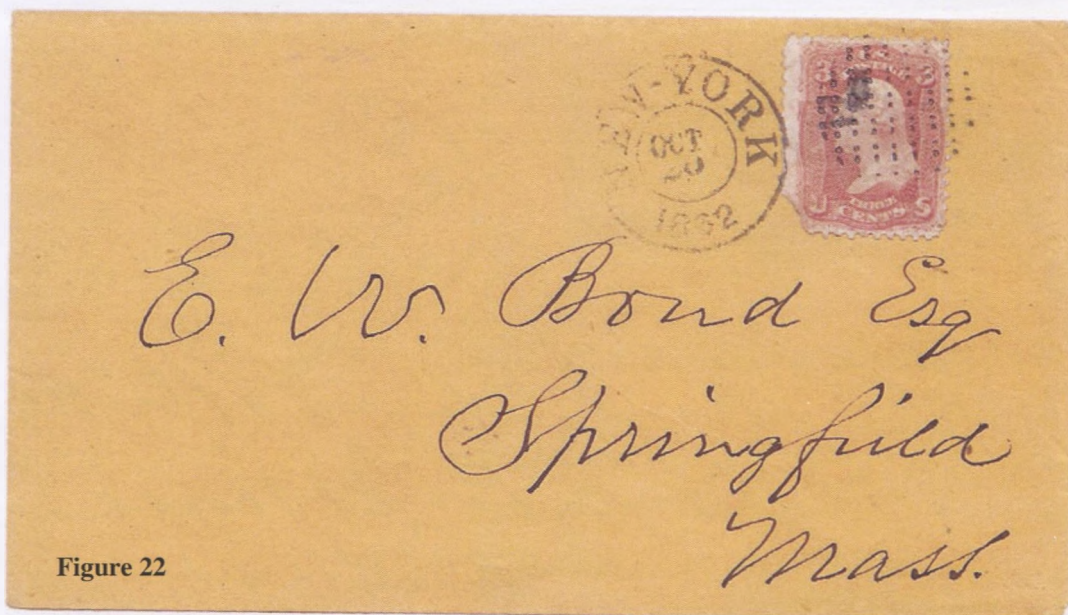 NEW-YORK
OCT
20
1862
3 U.S. 3
POSTAGE
U THREE S
CENTS
E. W. Bond Esq
Springfield
Mass.
Figure 22